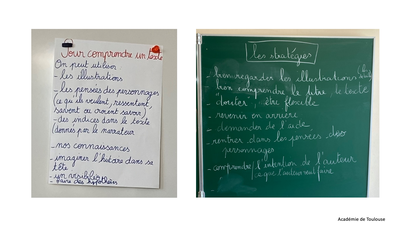 Pour comprendre un texte
On peut utiliser
- les illustrations
- les pensées des personnages
(ce qu'ils veulent, ressentent,
savent ou croient savoir)
- des indices dans le texte
(donnés par le narrateur
- nos connaissances
- imaginer l'histoire dans sa
tête
- faire des hypothèses
les stratégies
- bien regarder les illustrations
bien comprendre le titre le texte
- douter, être flexible
- revenir en arrière
- demander de l'aide
- rentrer dans les pensées des
personnages
- comprendre l'intention de l'auteur
ce que l'auteur veut faire
Académie de Toulouse